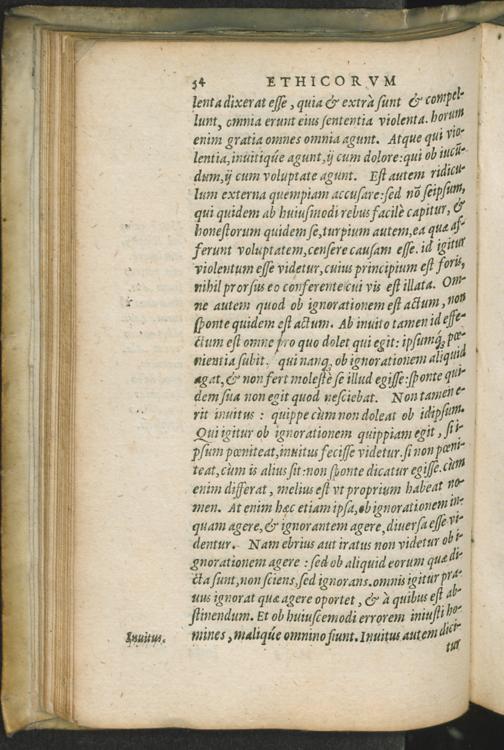 54 ETHICORVM
lenta dixerat esse, quia & extrà sunt & compel-
lunt, omnia erunt eius sententia violenta. horum
enim gratia omnes omnia agunt. Atque qui vio-
lentia, inuitiq́ue agunt, ij cum dolore: qui ob iucū-
dum, ij cum voluptate agunt. Est autem ridicu-
lum externa quempiam accusare: sed nō seipsum,
qui quidem ab huiusmodi rebus facilè capitur, &
honestorum quidem se, turpium autem, ea quæ af-
ferunt voluptatem, censere causam esse. id igitur
violentum esse videtur, cuius principium est foris,
nihil prorsus eo conferente cui vis est illata. Om-
ne autem quod ob ignorationem est actum, non
sponte quidem est actum. Ab inuito tamen id effe-
ctum est omne pro quo dolet qui egit: ipsumq́; pœ-
nientia subit. qui nanq; ob ignorationem aliquid
agat, & non fert molestè se illud egisse: sponte qui-
dem sua non egit quod nesciebat. Non tamen e-
rit inuitus: quippe cùm non doleat ob idipsum.
Qui igitur ob ignorationem quippiam egit, si i-
psum pœniteat, inuitus fecisse videtur. si non pœni-
teat, cùm is alius sit: non sponte dicatur egisse. cùm
enim differat, melius est vt proprium habeat no-
men. At enim hæc etiam ipsa, ob ignorationem in-
quam agere, & ignorantem agere, diuersa esse vi-
dentur. Nam ebrius aut iratus non videtur ob i-
gnorationem agere: sed ob aliquid eorum quæ di-
cta sunt, non sciens, sed ignorans. omnis igitur pra-
uus ignorat quæ agere oportet, & à quibus est ab-
stinendum. Et ob huiuscemodi errorem iniusti ho-
Inuitus. mines, maliq́ue omnino fiunt. Inuitus autem dici-
tur